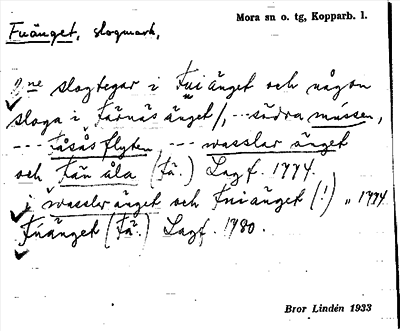 Mora sn o. tg, Kopparb. l.
Fuänget, slogmark,
2ne slogtegar i Fuiänget och någon
sloga i Färnäs änget/, -- södra mussen,
--- Fåsås flyten --- wasslar änget
och Fän åla (Fä.) Lagf. 1774.
i wassler änget och Fuiänget (!) „ 1774
Fuänget (Fä.) Lagf. 1780.
Bror Lindén 1933